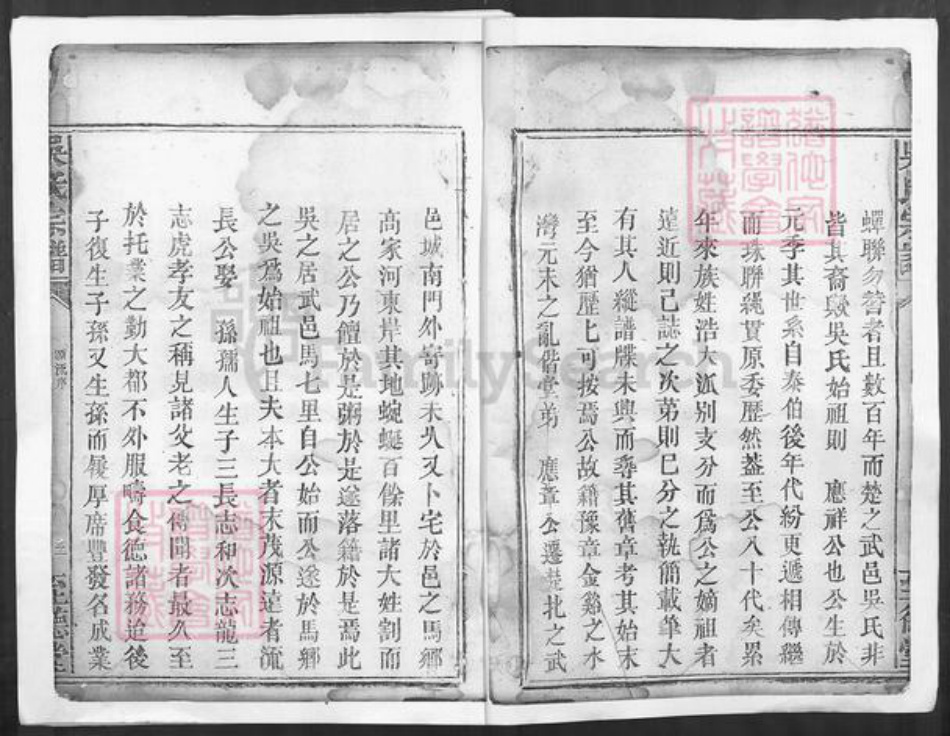 蟬聯勿替者且數百年而楚之武邑吳氏非
皆其裔歟吳氏始祖則 應祥公也公生於
元季其世系自泰伯後年代紛更遞相傳繼
而珠聯繩貫原委歷然蓋至公八十代矣累
年來族姓浩大派別支分而爲公之嫡祖者
遠近則已誌之次第則巳分之執簡載筆大
有其人縱譜牒未與而尋其舊章考其始末
至今猶歷匕可按焉公故籍豫章金谿之水
灣元末之亂偕堂弟 應章公遷楚北之武
邑城南門外寄跡未久又卜宅於邑之馬鄉
高家河東岸其地蜿蜒百餘里諸大姓割而
居之公乃饘於是粥於是遂落籍於是焉此
吳之居武邑馬七里自公始而公遂於馬鄉
之吳爲始祖也且夫本大者末茂源遠者流
長公娶 孫孺人生子三長志和次志龍三
志虎孝友之稱見諸父老之傳聞者最久至
於托業之勤大都不外服疇食德諸務迨後
子復生子孫又生孫而履厚席豐發名成業
吳氏宗譜
源流序